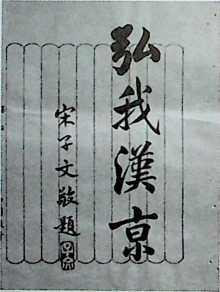 弘我漢京
宋子文敬題